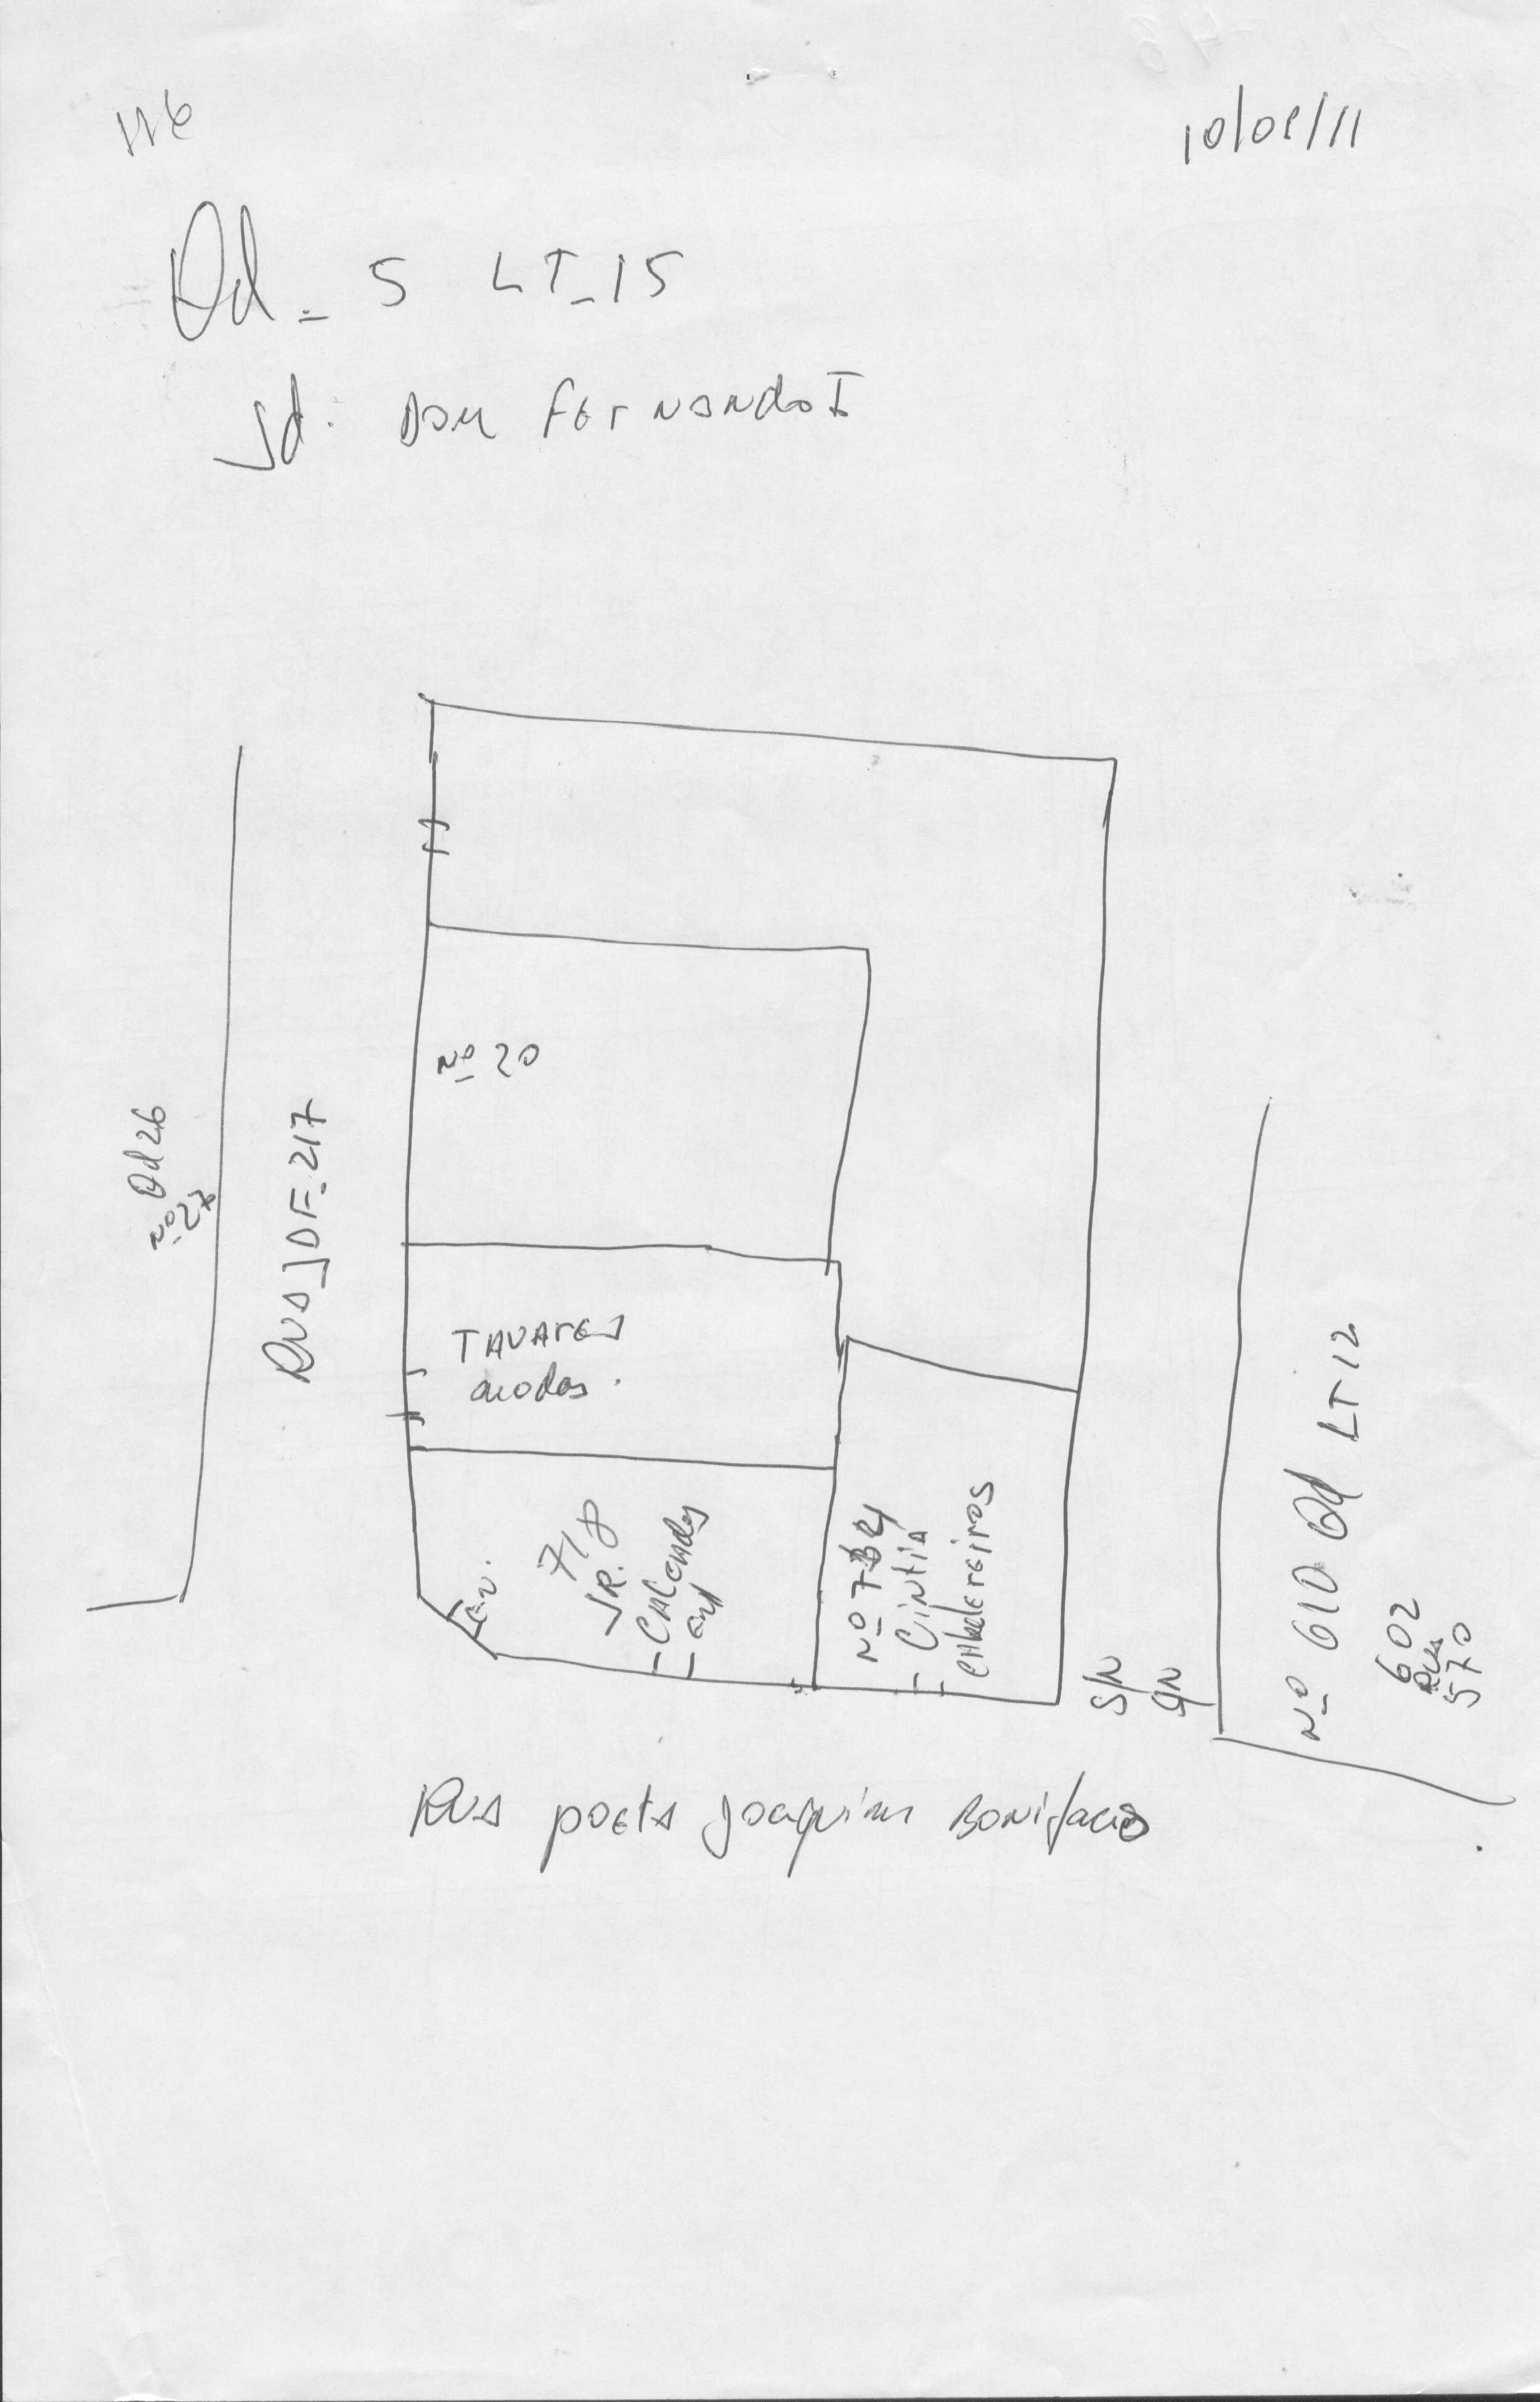 116
10/08/11
Qd_ 5 LT_15
Jd. Dom Fernando I
Nº 20
Qd 26
Nº 27
RUA JDF_217
TAVARES
modas.
718
JR.
Nº 734
Cintia
cabeleireiros
S/N
Nº 610 Qd LT 12
602
570
Rua poeta Joaquim Bonifacio